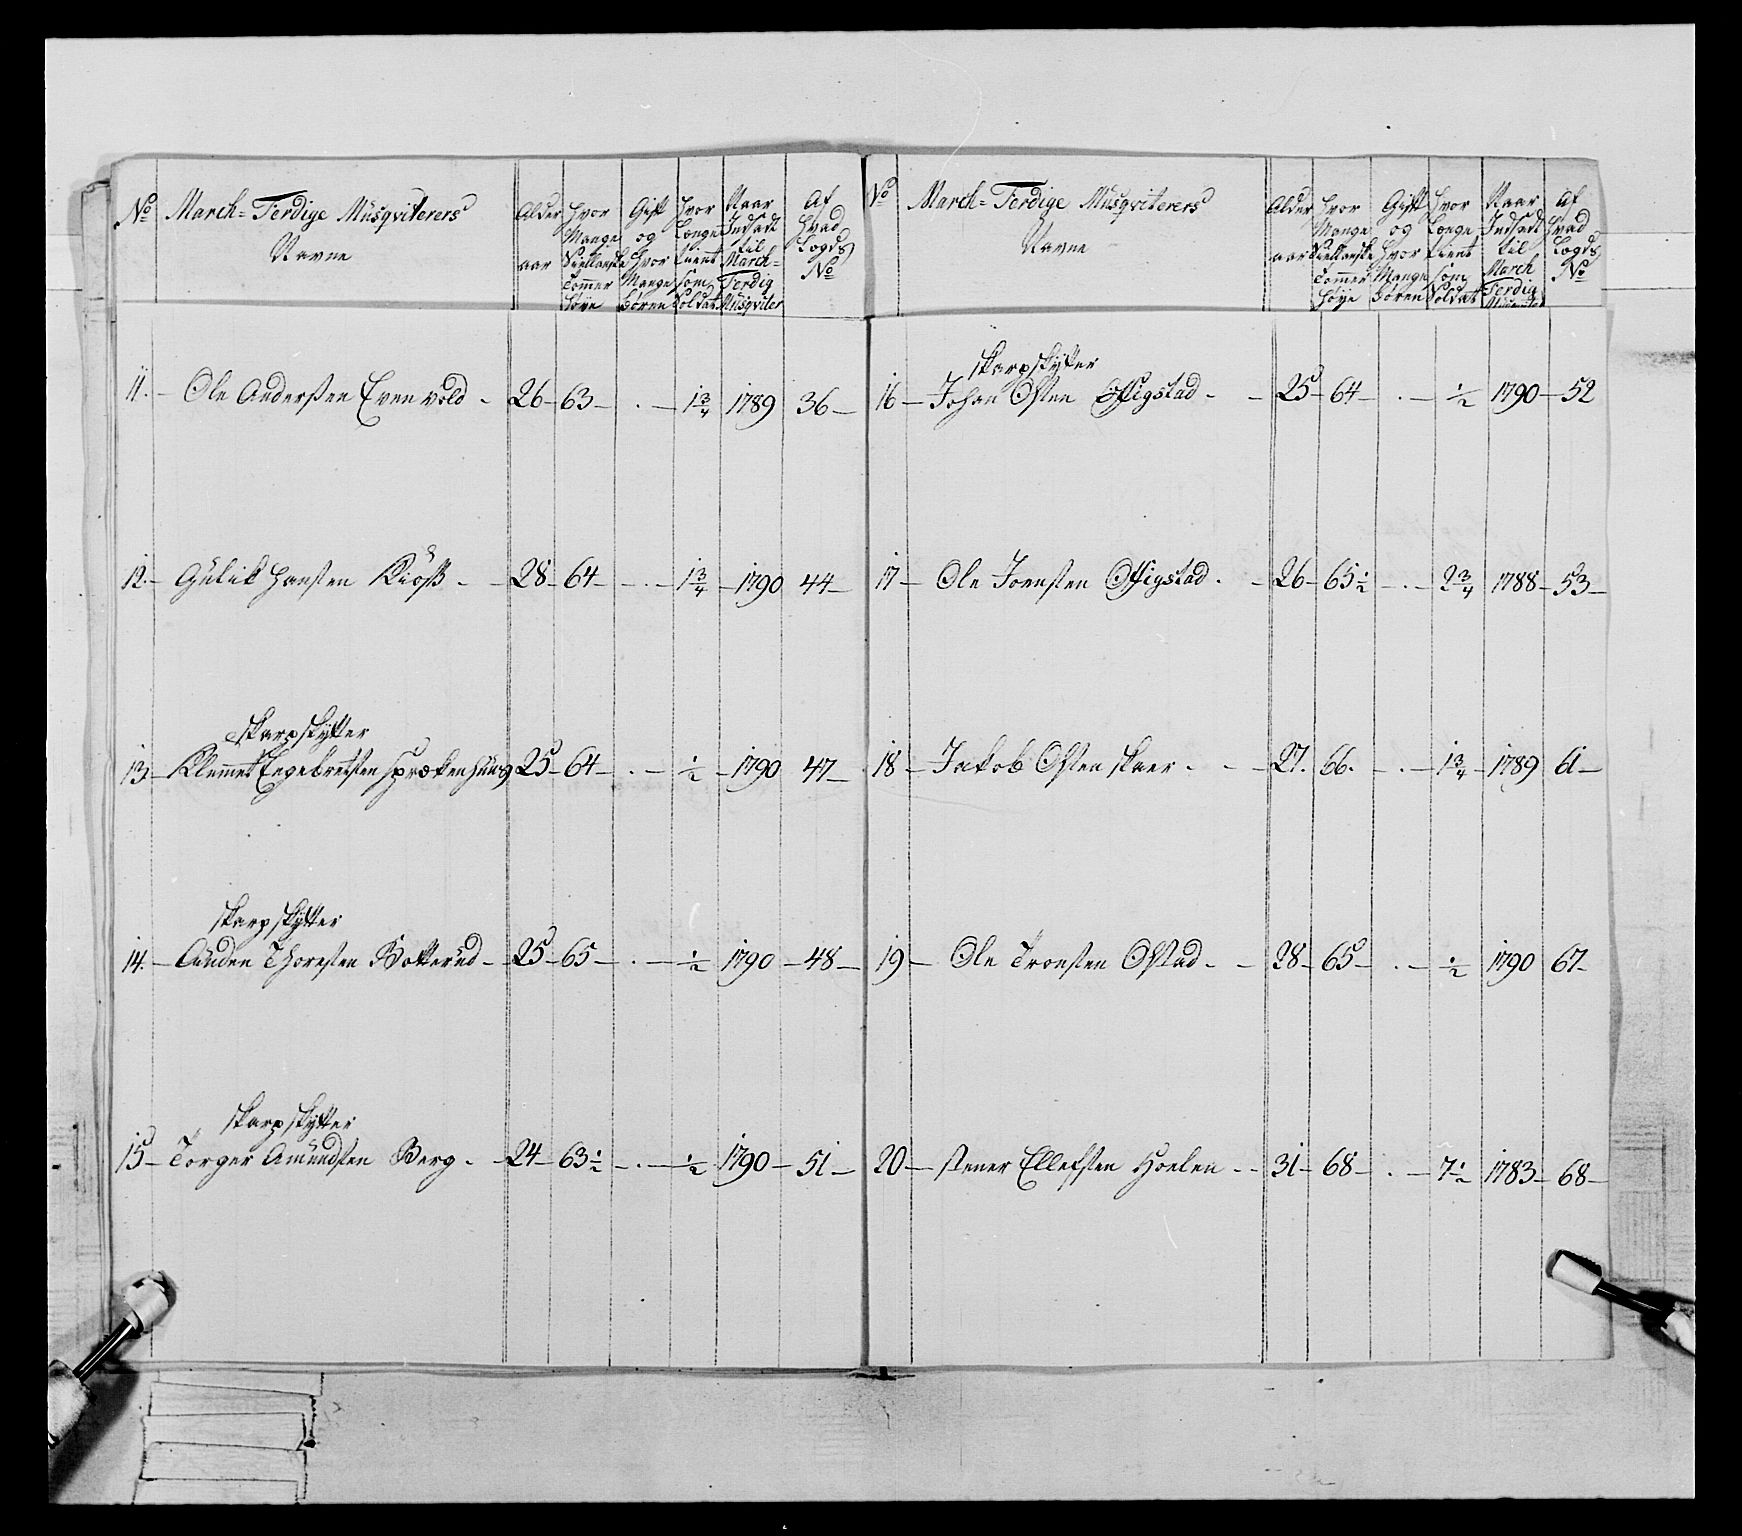 No March=Ferdige Musqviterers Navne Alder aar Hvor Mange Siellanske Tommer Høye Gift og Hvor Mange Børen Hvor Længe tient som Soldat Naar Indsadt til March=Ferdig Musqviter Af Hvad Lægds No
11. – Ole Andersen Evenvold – 26 – 63 – . – 1 3/4 1789 36 –
12. – Gulik Hansen Kiøss – 28 – 64 – . – 1 3/4 – 1790 44 –
skarpskytter
13 – Klemmet Engebretsen Sprækenhuus 25 – 64 – . – 1/2 – 1790 47 –
skarpskytter
14. – Auden Thoresen Botterud – 25 – 65 – . – 1/2 1790 – 48 –
skarpskytter
15 – Torger Amundsen Berg – 24 – 63 1/2 – . – 1/2 1790 – 51 –
No March=Ferdige Musqviterers Navne Alder aar Hvor Mange Siellanske Tommer Høye Gift og Hvor Mange Børen Hvor Længe tient som Soldat Naar Indsadt til March Ferdig Musqviter Af Hvad Lægds No
skarpskytter
16 – Johan Olsen – 25 – 64 – . – 1/2 1790 – 52
17 – Ole Joensen – 26 – 65 1/2 – . – 2 3/4 1788 – 53 –
18 – Jakob Olsen Skaer – 27. 66. – . – 1 3/4 – 1789 61 –
19 – Ole Tronsen Olstad – 28 – 65 – . – 1/2 1790 67 –
20 – Stener Ellefsen Hoelen – 31 – 68 – . – 7 1/2 1783 – 68 –